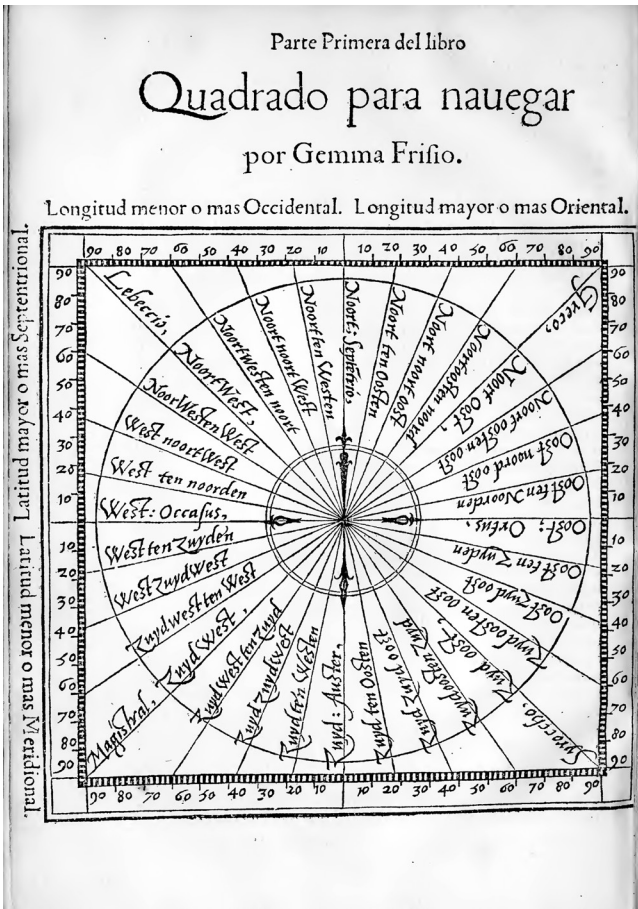 Parte Primera del libro
Quadrado para nauegar
por Gemma Frisio.
Longitud menor o mas Occidental. Longitud mayor o mas Oriental.
90 80 70 60 50 40 30 20 10 10 20 30 40 50 60 70 80 90
Latitud mayor o mas Septentrional.
Latitud menor o mas Meridional.
90
80
70
60
50
40
30
20
10
10
20
30
40
50
60
70
80
90
Lebeccio,
NoortWest,
NoortWesten noort
Noort noort West
Noort ten Westen
Noort; Septētrio,
Noort ten Oosten
Noort noort oost
Noortoosten noord
Noort Oost,
Greco,
Noort oosten oost
Oost noord oost
Oost ten Noorden
Oost; Ortus,
Oost ten Zuyden
Oost zuyd oost
Zuyd oosten oost
Zuyd oost,
Syroccho,
Zuydoosten Zuyd
Zuyd Zuyd oost
Zuyd ten Oosten
Zuyd: Auster,
Zuyd ten Westen
Zuyd Zuyd West
Zuyd Westen Zuyd
Zuyd West,
Magistral,
Zuydwest ten West
West Zuyd West
West ten Zuyden
West: Occasus,
West ten noorden
West noort West
NoorWesten West
90
80
70
60
50
40
30
20
10
10
20
30
40
50
60
70
80
90
90 80 70 60 50 40 30 20 10 10 20 30 40 50 60 70 80 90